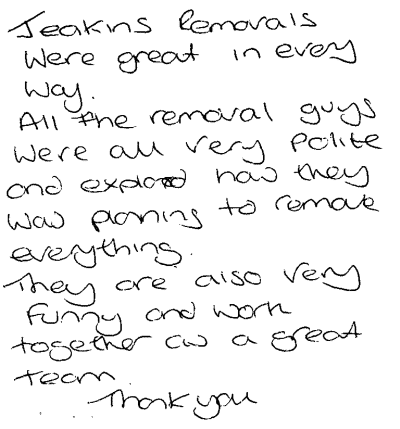 Jeakins Removals
were great in every
way.
All the removal guys
were all very polite
and how they
was planing to remove
everything.
They are also very
funny and work
together as a great
team.
Thank you